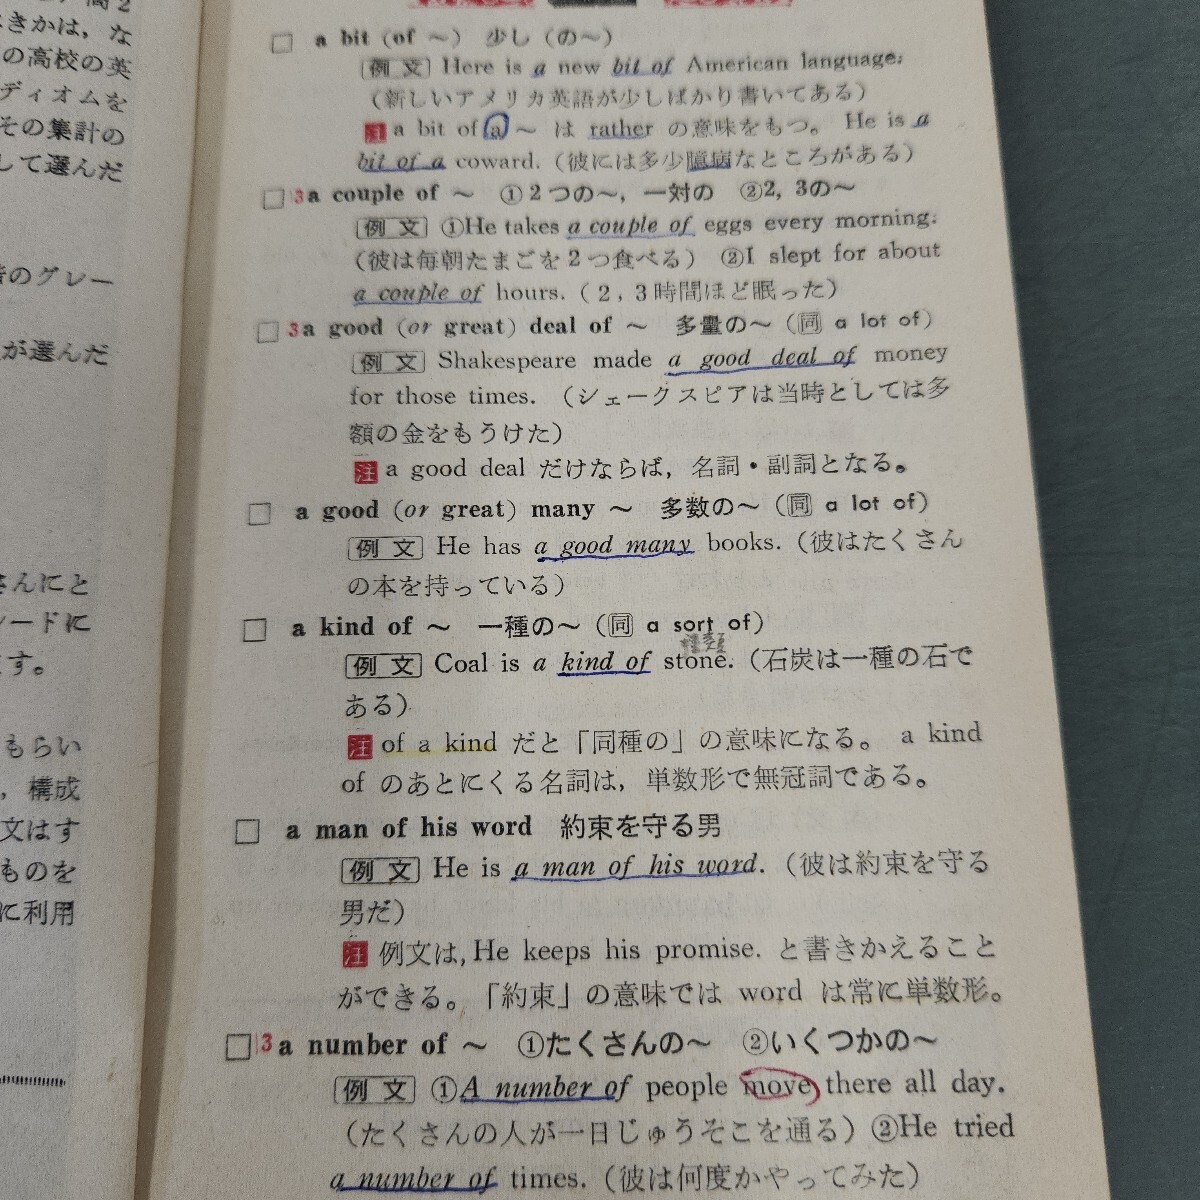 高2
きかは，な
の高校の英
ディオムを
その集計の
して選んだ
のグレー
が選んだ
さんにと
ードに
す。
もらい
，構成
文はす
ものを
に利用
□ a bit (of ～) 少し（の～）
例文 Here is a new bit of American language.
（新しいアメリカ英語が少しばかり書いてある）
注 a bit of a ～ は rather の意味をもつ。 He is a
bit of a coward.（彼には多少臆病なところがある）
□ 3 a couple of ～ ①2つの～，一対の ②2, 3の～
例文 ①He takes a couple of eggs every morning.
（彼は毎朝たまごを2つ食べる） ②I slept for about
a couple of hours.（2，3時間ほど眠った）
□ 3 a good (or great) deal of ～ 多量の～（同 a lot of）
例文 Shakespeare made a good deal of money
for those times. （シェークスピアは当時としては多
額の金をもうけた）
注 a good deal だけならば，名詞・副詞となる。
□ a good (or great) many ～ 多数の～（同 a lot of）
例文 He has a good many books.（彼はたくさん
の本を持っている）
□ a kind of ～ 一種の～（同 a sort of）
種類
例文 Coal is a kind of stone.（石炭は一種の石で
ある）
注 of a kind だと「同種の」の意味になる。 a kind
of のあとにくる名詞は，単数形で無冠詞である。
□ a man of his word 約束を守る男
例文 He is a man of his word.（彼は約束を守る
男だ）
注 例文は, He keeps his promise. と書きかえること
ができる。「約束」の意味では word は常に単数形。
□ 3 a number of ～ ①たくさんの～ ②いくつかの～
例文 ①A number of people move there all day.
（たくさんの人が一日じゅうそこを通る）②He tried
a number of times.（彼は何度かやってみた）